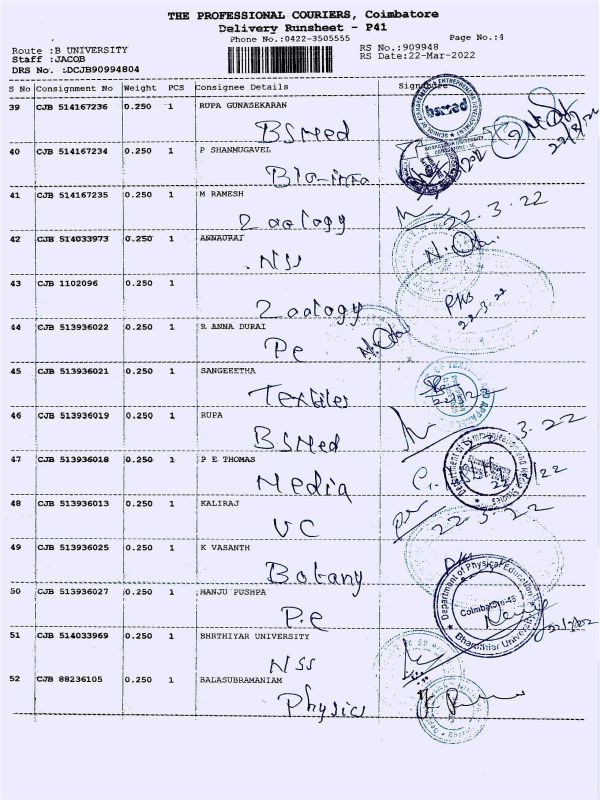 THE PROFESSIONAL COURIERS, Coimbatore
Delivery Runsheet - P41
Phone No.:0422-3505555
Page No.:4
Route :B UNIVERSITY
RS No.:909948
Staff :JACOB
RS Date:22-Mar-2022
DRS No. :DCJB90994804
S No Consignment No Weight PCS Consignee Details Signature
39 CJB 514167236 0.250 1 RUPA GUNASEKARAN
BSMed
40 CJB 514167234 0.250 1 P SHANMUGAVEL
Bio-info
41 CJB 514167235 0.250 1 M RAMESH
Zoology 22.3.22
42 CJB 514033973 0.250 1 ANNAURAJ
NSS
43 CJB 1102096 0.250 1
Zoology 22.3.22
44 CJB 513936022 0.250 1 R ANNA DURAI
Pe
45 CJB 513936021 0.250 1 SANGEEETHA
Textiles
46 CJB 513936019 0.250 1 RUPA
BSMed
47 CJB 513936018 0.250 1 P E THOMAS
Media
48 CJB 513936013 0.250 1 KALIRAJ
VC 22.3.22
49 CJB 513936025 0.250 1 K VASANTH
Botany
50 CJB 513936027 0.250 1 MANJU PUSHPA
P.e
Department of Physical Education
Coimbatore-46
Bharathiar University
51 CJB 514033969 0.250 1 BHRTHIYAR UNIVERSITY
NSS
52 CJB 88236105 0.250 1 BALASUBRAMANIAM
Physics
bsmed